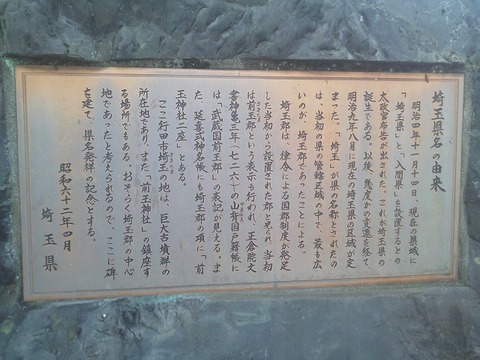 埼玉県名の由来
明治四年十一月十四日、現在の県域に
「埼玉県」と、「入間県」を設置するとの
太政官布告が出された。これが埼玉県の
誕生である。以後、幾度かの変遷を経て、
明治九年八月に現在の埼玉県の区域が定
まった。「埼玉」が県の名称とされたの
は、当初の県の管轄区域の中で、最も広
いのが、埼玉郡であったことによる。
埼玉郡は、律令による国郡制度が発足
した当初から設置された郡と見られ、当初
は前玉郡という表示も行われ、正倉院文
書神亀三年(七二六年)の山背国戸籍帳に
は「武蔵国前玉郡」の表記が見える。ま
た、延喜式神名帳にも埼玉郡の項に、「前
玉神社二座」とある。
ここ行田市埼玉の地は、巨大古墳群の
所在地であり、また、「前玉神社」の鎮座す
る場所でもある。おそらく埼玉郡の中心
地であったと考えられるので、ここに碑
を建て、県名発祥の記念とする。
昭和六十二年四月
埼玉県